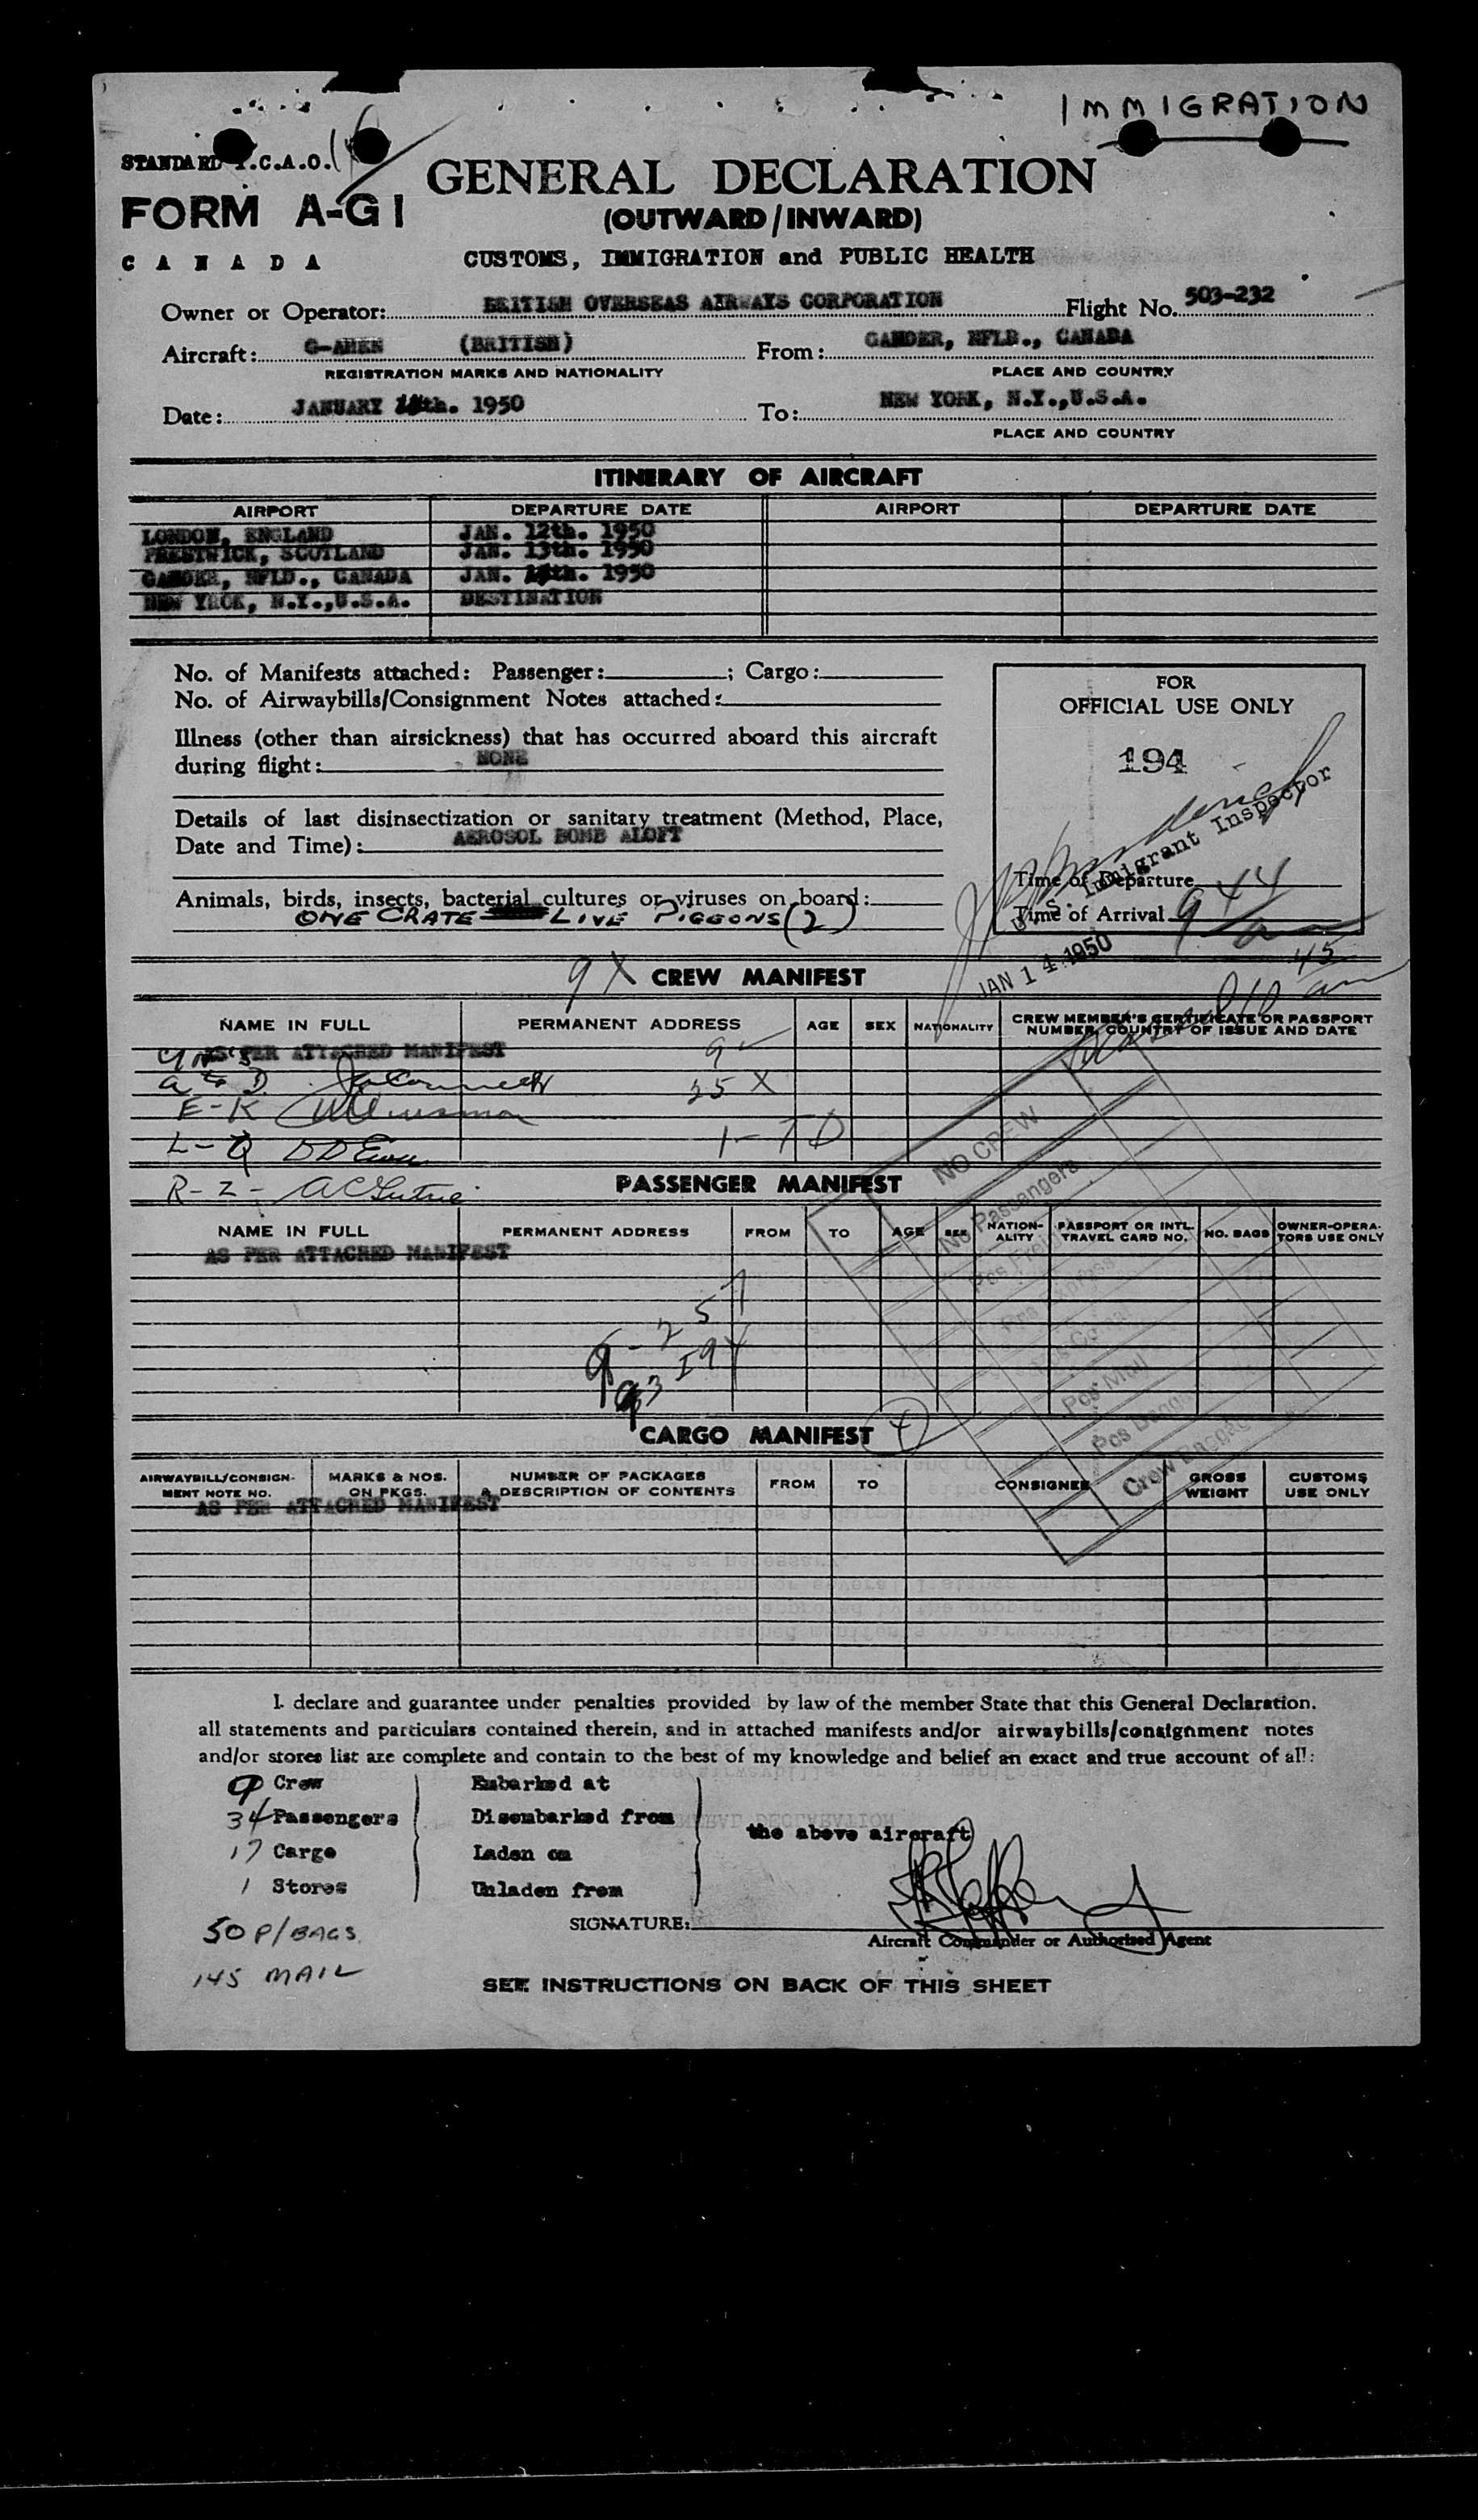 IMMIGRATION
STANDARD I.C.A.O.
FORM A-G1
CANADA
GENERAL DECLARATION
(OUTWARD/INWARD)
CUSTOMS, IMMIGRATION and PUBLIC HEALTH
Owner or Operator: BRITISH OVERSEAS AIRWAYS CORPORATION Flight No. 503-232
Aircraft: (BRITISH) From: GANDER, NFLD., CANADA
REGISTRATION MARKS AND NATIONALITY PLACE AND COUNTRY
Date: JANUARY 1950 To: NEW YORK, N.Y.,U.S.A.
PLACE AND COUNTRY
ITINERARY OF AIRCRAFT
AIRPORT DEPARTURE DATE AIRPORT DEPARTURE DATE
LONDON, ENGLAND JAN. 12th. 1950
PRESTWICK, SCOTLAND JAN. 13th. 1950
GANDER, NFLD., CANADA JAN. 1950
NEW YRCK, N.Y.,U.S.A. DESTINATION
No. of Manifests attached: Passenger: ; Cargo:
No. of Airwaybills/Consignment Notes attached:
Illness (other than airsickness) that has occurred aboard this aircraft
during flight: NONE
Details of last disinsectization or sanitary treatment (Method, Place,
Date and Time): AEROSOL BOMB ALOFT
Animals, birds, insects, bacterial cultures or viruses on board:
ONE CRATE LIVE PIGEONS (2)
FOR
OFFICIAL USE ONLY
194
U.S. Immigrant Inspector
Time of Departure
Time of Arrival 9 44
JAN 14 1950
9 X CREW MANIFEST
NAME IN FULL PERMANENT ADDRESS AGE SEX NATIONALITY CREW MEMBER'S CERTIFICATE OR PASSPORT
NUMBER, COUNTRY OF ISSUE AND DATE
AS PER ATTACHED MANIFEST 9
A to D 25 X
E-K
L-Q 1-TD
R-Z-
PASSENGER MANIFEST
NAME IN FULL PERMANENT ADDRESS FROM TO AGE SEX NATION-
ALITY PASSPORT OR INTL.
TRAVEL CARD NO. NO. BAGS OWNER-OPERA-
TORS USE ONLY
AS PER ATTACHED MANIFEST
NO CREW
No Passengers
Pcs Freight
Pcs Mail
Pcs Baggage
Crew Baggage
CARGO MANIFEST
AIRWAYBILL/CONSIGN-
MENT NOTE NO. MARKS & NOS.
ON PKGS. NUMBER OF PACKAGES
& DESCRIPTION OF CONTENTS FROM TO CONSIGNEE GROSS
WEIGHT CUSTOMS
USE ONLY
AS PER ATTACHED MANIFEST
I declare and guarantee under penalties provided by law of the member State that this General Declaration,
all statements and particulars contained therein, and in attached manifests and/or airwaybills/consignment notes
and/or stores list are complete and contain to the best of my knowledge and belief an exact and true account of all:
9 Crew Embarked at
34 Passengers Disembarked from the above aircraft
17 Cargo Laden on
1 Stores Unladen from
SIGNATURE:
Aircraft Commander or Authorised Agent
50 P/BAGS
145 MAIL
SEE INSTRUCTIONS ON BACK OF THIS SHEET